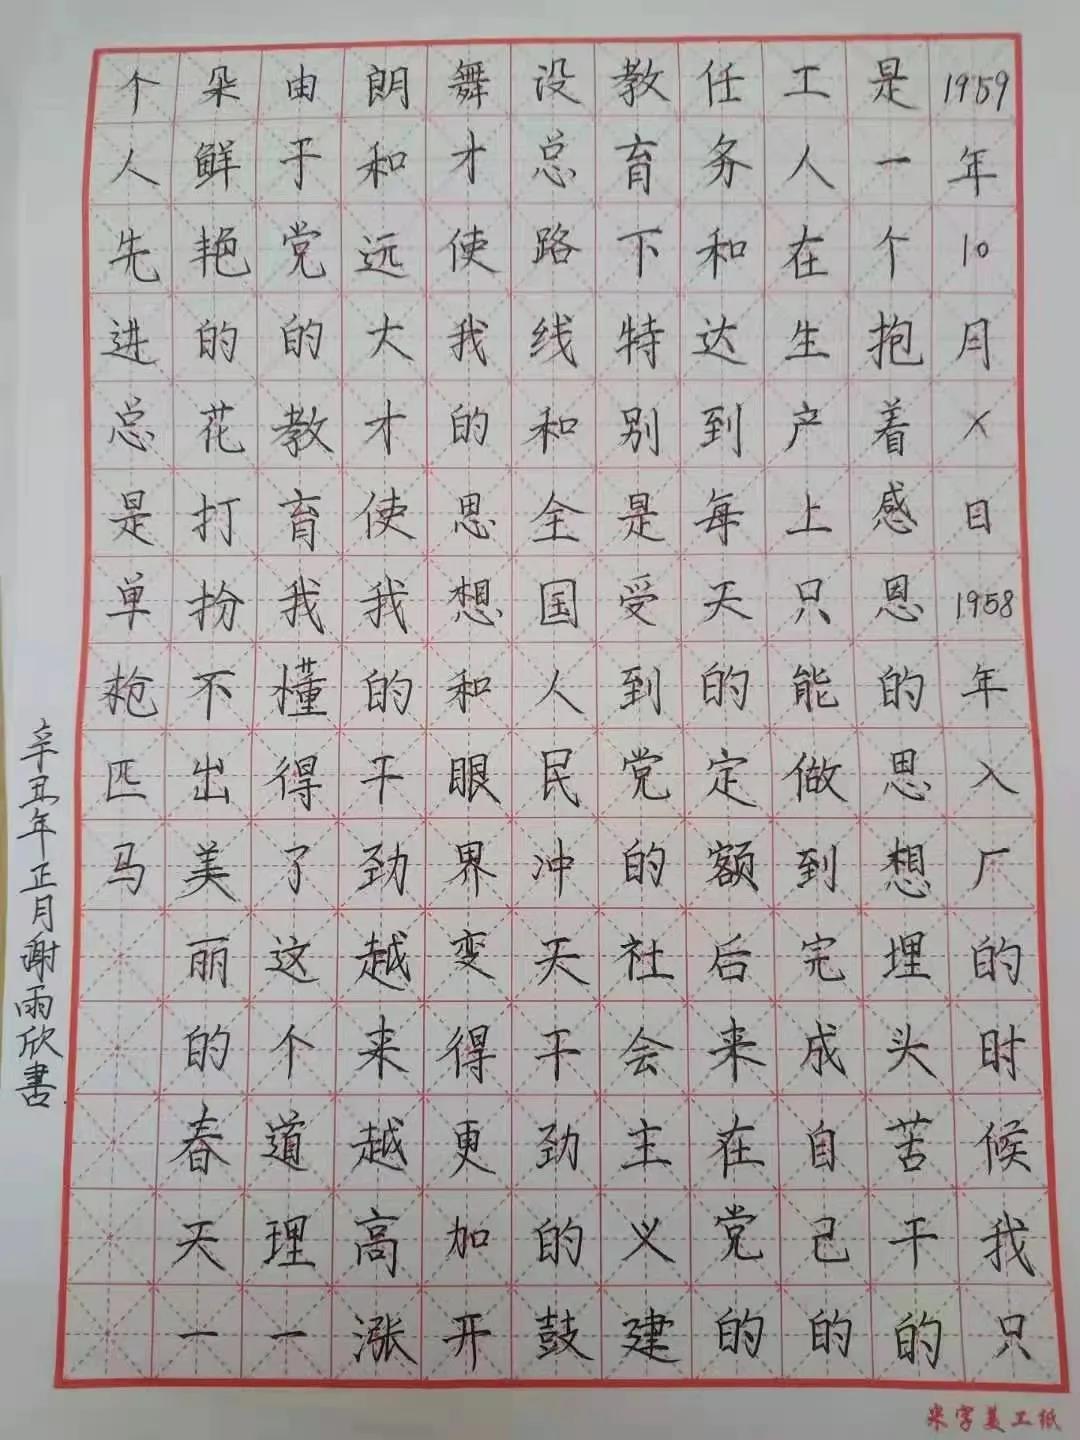 1959年10月X日1958年入厂的时候我只
是一个抱着感恩的思想埋头苦干的
工人在生产上只能做到完成自己的
任务和达到每天的定额后来在党的
教育下特别是受到党的社会主义建
设总路线和全国人民冲天干劲的鼓
舞才使我的思想和眼界变得更加开
朗和远大才使我的干劲越来越高涨
由于党的教育我懂得了这个道理一
朵鲜艳的花打扮不出美丽的春天一
个人先进总是单枪匹马
辛丑年正月谢雨欣書
米字美工纸